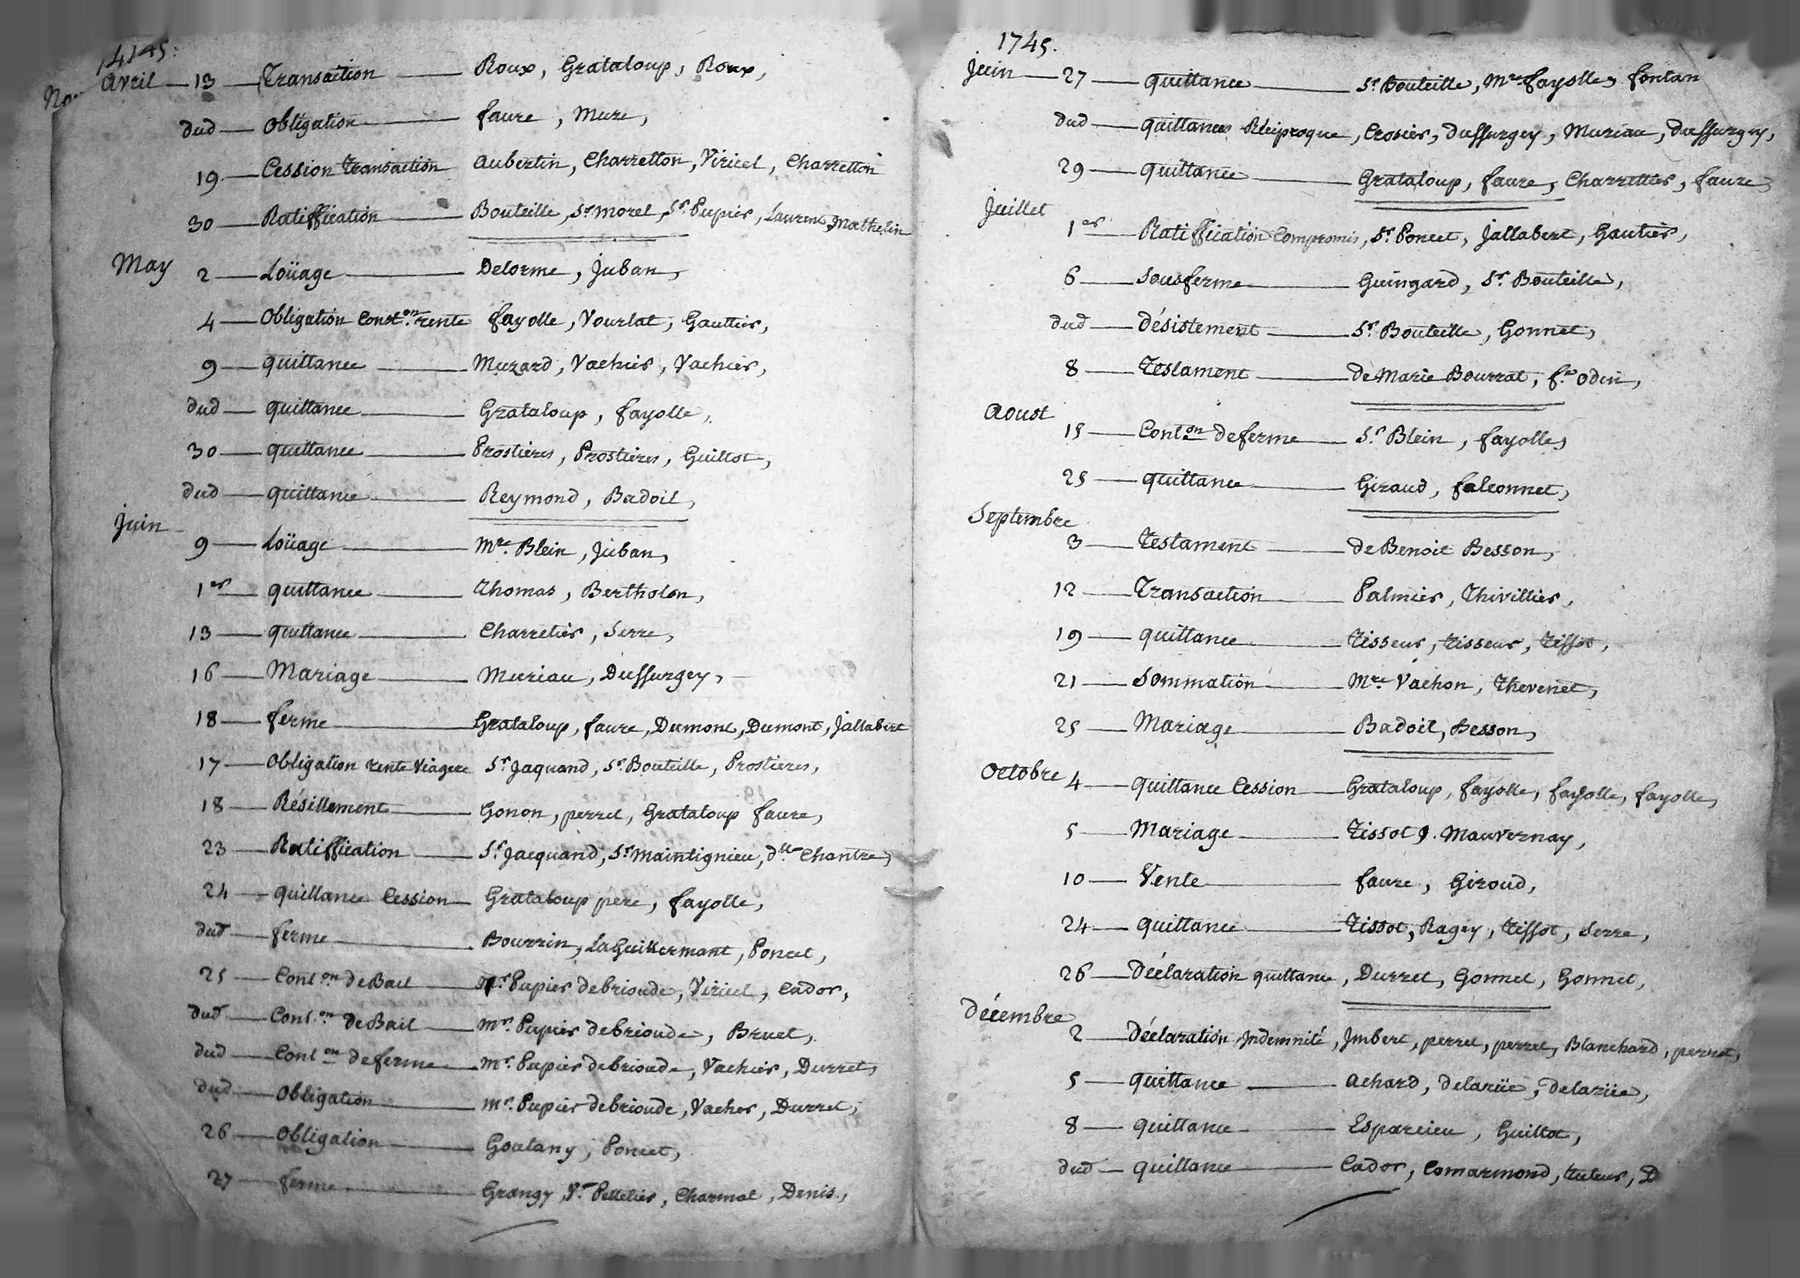 1745.
Avril — 13 — Transaction — Roux, Grataloup, Roux,
dud — Obligation — faure, Mure,
19 — Cession Transaction Aubertin, Charretton, Viricel, Charretton
30 — Ratiffication — Bouteille, Sr. Morel, Sr. Pupier, Laurent, Mathelin
May 2 — Loüage — Delorme, Juban,
4 — Obligation Const.on rente fayolle, Vourlat, Gauttier,
9 — quittance — Muzard, Vachier, Vachier,
dud — quittance — Grataloup, fayolle,
30 — quittance — Prostieres, Prostieres, Guillot,
dud — quittance — Reymond, Badoil,
Juin 9 — Loüage — Mre. Blein, Juban,
1er — quittance — Thomas, Bertholon,
13 — quittance — Charretier, Serre,
16 — Mariage — Muriau, Dussurgey,
18 — ferme — Grataloup, faure, Dumont, Dumont, Jallabert
17 — Obligation rente Viagere Sr. Jaquand, Sr. Bouteille, Prostieres,
18 — Résillement — Gonon, perret, Grataloup faure,
23 — Ratiffication — Sr. Jacquand, Sr. Maintignieu, dlle. Chantre,
24 — quittance Cession — Grataloup pere, fayolle,
dud — ferme — Bourrin, LaGuillermont, Poncet,
25 — Cont.on de Bail — Mr. Pupier debrioude, Viricel, Cador,
dud — Cont.on de Bail — Mr. Pupier debrioude, Bruet,
dud — Cont.on de ferme — Mr. Pupier debrioude, Vachier, Durret,
dud — Obligation — Mr. Pupier debrioude, Vacher, Durret,
26 — Obligation — Goutany, Poncet,
27 — ferme — Grangy, Sr. Pelletier, Charmat, Denis,
1745.
Juin — 27 — quittance — Sr. Bouteille, Mre. fayolle, fontan
dud — quittances Réiproque, Crosier, Dussurgey, Muriau, Dussurgey,
29 — quittance — Grataloup, faure, Charrettier, faure,
Juillet
1er — Ratiffication Compromis, Sr. Poncet, Jallabert, Gautier,
6 — Sousferme — Guingard, Sr. Bouteille,
dud — désistement — Sr. Bouteille, Gonnet,
8 — Testament — de Marie Bourrat, fe. Odin,
Aoust
15 — Cont.on de ferme — Sr. Blein, fayolle,
25 — quittance — Giraud, falconnet,
Septembre
3 — Testament — de Benoit Besson,
12 — Transaction — Palmier, Thivillier,
19 — quittance — Tisseur, Tisseur, Tissot,
21 — Sommation — Mre. Vachon, Thevenet,
25 — Mariage — Badoil, Besson,
Octobre 4 — quittance Cession — Grataloup, fayolle, fayolle, fayolle,
5 — Mariage — Tissot J. Mauvernay,
10 — Vente — faure, Giroud,
24 — quittance — Tissot, Ragey, Tissot, Serre,
26 — Déclaration quittance, Durret, Gonnet, Gonnet,
Décembre
2 — Déclaration Indemnité, Imbert, perret, perret, Blanchard, perret,
5 — quittance — Achard, delarüe, delarüe,
8 — quittance — Esparcieu, Guillot,
dud — quittance — Cador, Comarmond, tuteur, D